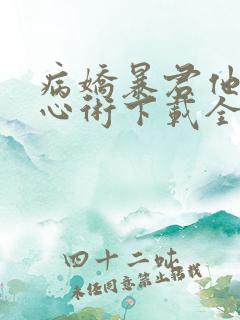 病嬌暴君他
心術下載全
四十二吠
未經同意禁止轉載